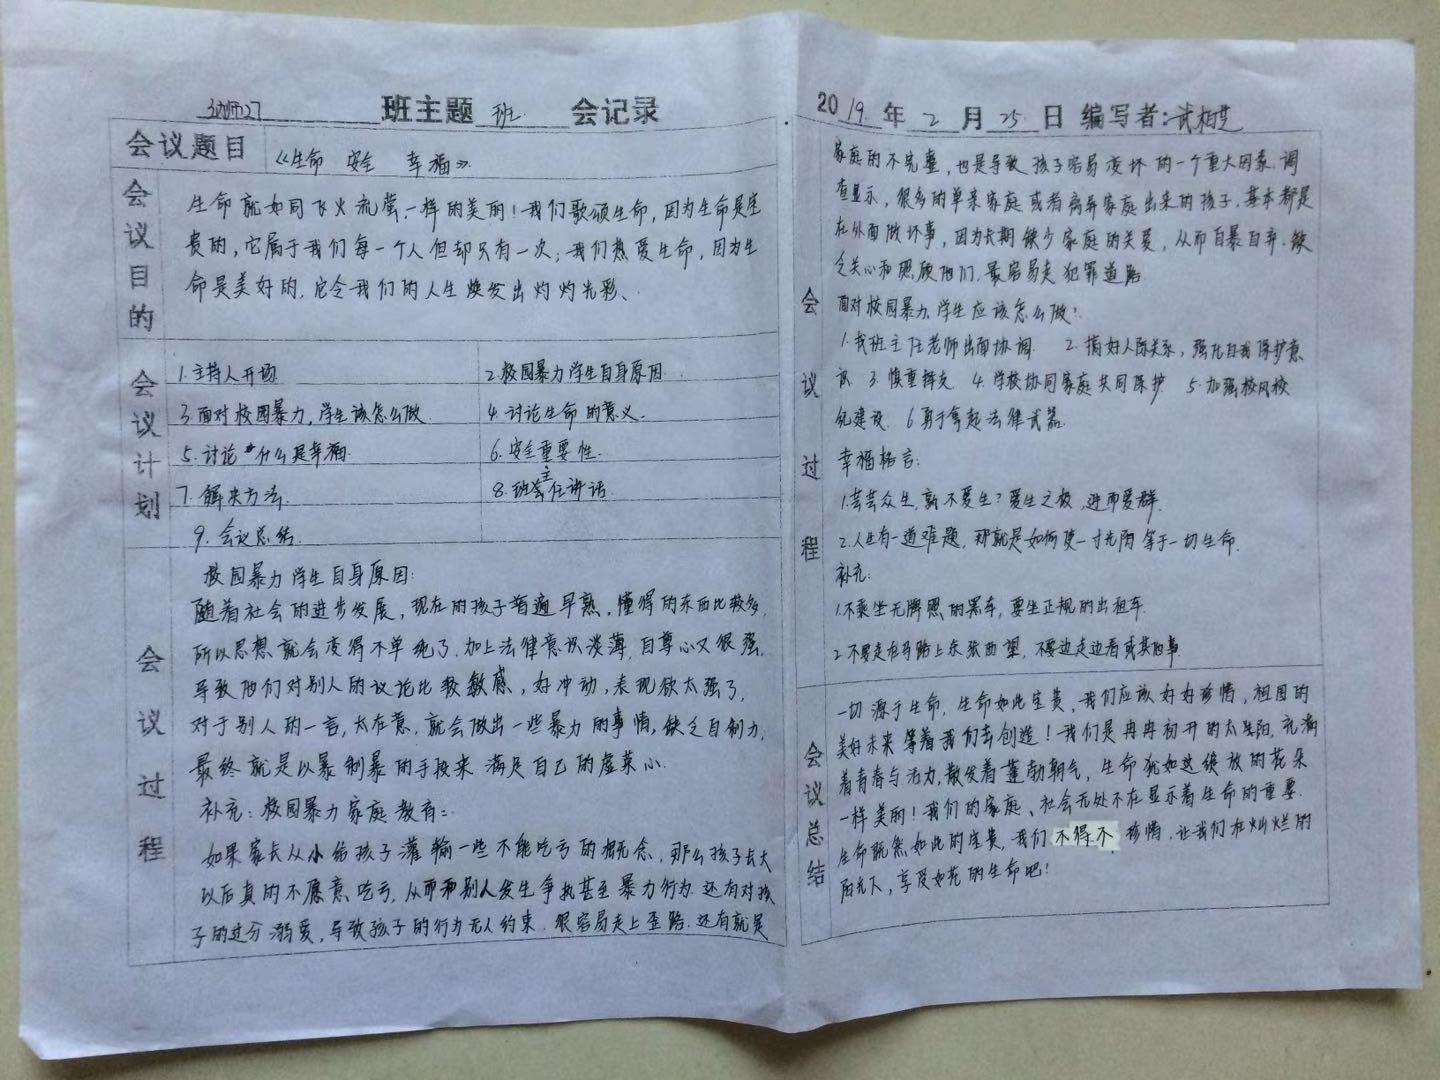 班主题 班 会记录
会议题目 《生命 安全 幸福》
会议目的
生命就如同飞火流萤一样的美丽！我们歌颂生命，因为生命是宝
贵的，它属于我们每一个人但却只有一次；我们热爱生命，因为生
命是美好的，它令我们的人生焕发出灼灼光彩、
会议计划
1.主持人开场 2.校园暴力学生自身原因
3.面对校园暴力，学生该怎么做 4.讨论生命的意义
5.讨论什么是幸福 6.安全重要性
7.解决方法 8.班主任讲话
9.会议总结
会议过程
校园暴力学生自身原因：
随着社会的进步发展，现在的孩子普遍早熟，懂得的东西比较多，
所以思想就会变得不单纯了，加上法律意识淡薄，自尊心又很强，
导致他们对别人的议论比较敏感，好冲动，表现欲太强了，
对于别人的一言，太在意，就会做出一些暴力的事情，缺乏自制力，
最终就是以暴制暴的手段来满足自己的虚荣心.
补充：校园暴力家庭教育：
如果家长从小给孩子灌输一些不能吃亏的概念，那么孩子长大
以后真的不愿意吃亏，从而和别人发生争执甚至暴力行为.还有对孩
子的过分溺爱，导致孩子的行为无人约束.很容易走上歪路.还有就是
2019年2月25日 编写者：武柏芝
会议过程
家庭的不完整，也是导致孩子容易变坏的一个重大因素.调
查显示，很多的单亲家庭或者离异家庭出来的孩子，基本都是
在外面做坏事，因为长期缺少家庭的关爱，从而自暴自弃.缺
乏关心和照顾他们，最容易走犯罪道路
面对校园暴力学生应该怎么做？
1.找班主任老师出面协调 2.搞好人际关系，强化自我保护意
识 3.慎重择友 4.学校协同家庭共同保护 5.加强校风校
纪建设 6.勇于拿起法律武器
幸福格言：
1.芸芸众生，孰不爱生？爱生之极，进而爱群.
2.人生有一道难题，那就是如何使一寸光阴等于一切生命.
补充：
1.不乘坐无牌照的黑车，要坐正规的出租车.
2.不要走在马路上东张西望，不要边走边看或其他事.
会议总结
一切源于生命，生命如此宝贵，我们应该好好珍惜，祖国的
美好未来等着我们去创造！我们是冉冉初开的太阳，充满
着青春与活力，散发着蓬勃朝气，生命犹如这绽放的花朵
一样美丽！我们的家庭、社会无处不在显示着生命的重要.
生命既然如此的宝贵，我们不得不珍惜，让我们在灿烂的
阳光下，享受如花的生命吧！